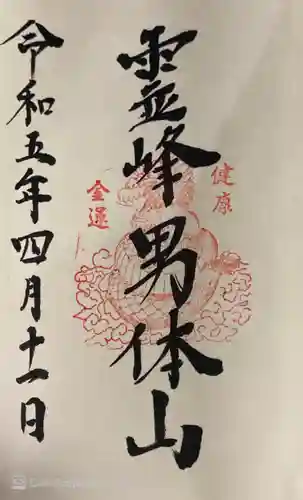 霊峰男体山
健康
金運
令和五年四月十一日